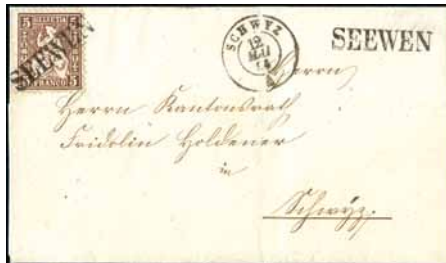 5 HELVETIA 5
5 FRANCO 5
SEEWEN
SCHWYZ
12
MAI
SEEWEN
Herrn
Herrn Kantonsrath
Fridolin Holdener
in
Schwyz.